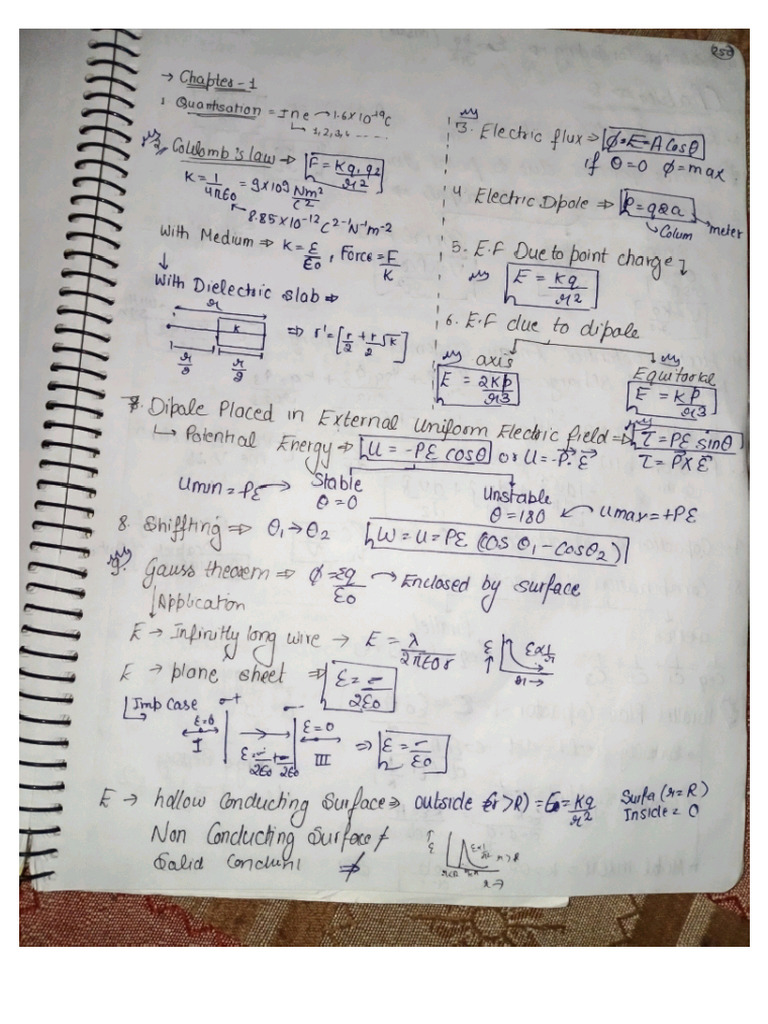 250
→ Chapter-1
1 Quantisation = I n e → 1.6×10⁻¹⁹C
↳ 1, 2, 3, 4 .....
2. Coulomb's law ⇒ F = Kq₁q₂/r²
K = 1/4πε0 = 9×109 Nm²/C²
8.85×10⁻¹² C²⁻N⁻¹m⁻²
With Medium ⇒ K = ε/ε0 , Force = F/K
↓
with Dielectric slab ⇒
r
K
⇒ r' = [r/2 + r/2 √K]
r/2 r/2
3. Electric flux ⇒ φ = E = A Cosθ
if θ = 0 φ = max
4. Electric Dipole ⇒ P = q2a → meter
↳ Colum
5. E.F Due to point charge ↴
E = Kq/r²
6. E.F due to dipole
axis Equitorial
E = 2KP/r3 E = KP/r3
7. Dipale Placed in External Uniform Electric field ⇒ τ = PE sinθ
↳ Potential Energy ⇒ U = -PE cosθ or U = -P⃗.E⃗ τ = P⃗×E⃗
Umin = PE → Stable Unstable
θ = 0 θ = 180 ← Umax = +PE
8. Shiffting ⇒ θ₁→θ₂ W = U = PE (cos θ₁ - cosθ₂)
9. Gauss theorem ⇒ φ = Σq/ε0 → Enclosed by surface
↓ Application
E → Infinitly long wire → E = λ/2πε0r E ↑ E∝1/r r→
E → plane sheet ⇒ E = σ/2ε0
Imp Case
σ+ σ-
E=0 E=0
I III ⇒ E = σ/ε0
E = σ/2ε0 + σ/2ε0
E → hollow Conducting Surface ⇒ outside (r>R) = E0 = Kq/r² Surfa (r=R)
Inside = 0
Non Conducting Surface
Salid Conduni ⇒ ↑E r>R r→